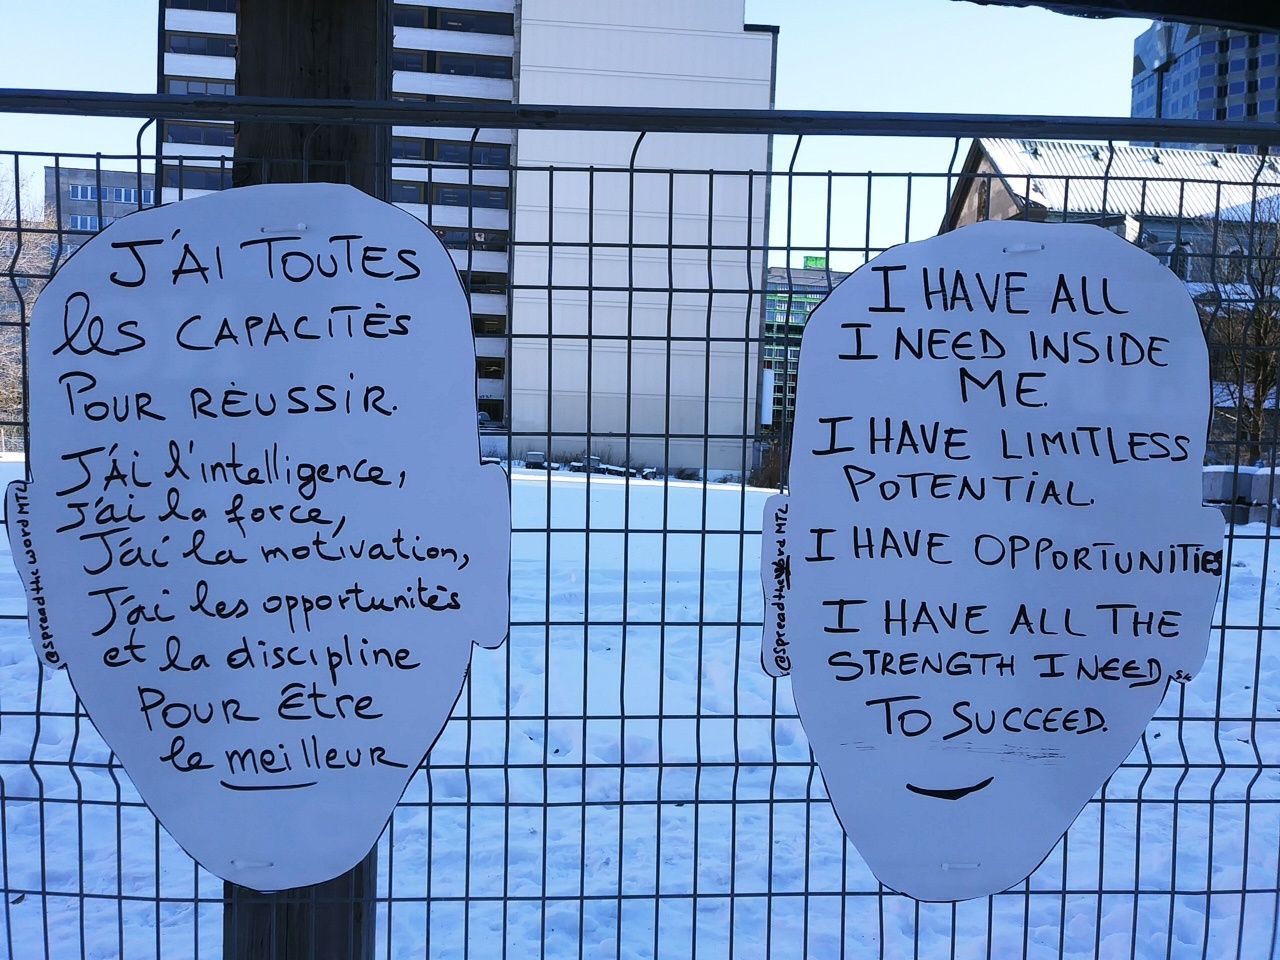 J'AI TOUTES
les CAPACITÉS
POUR RÉUSSIR.
J'Ai l'intelligence,
J'ai la force,
J'ai la motivation,
J'ai les opportunités
et la discipline
POUR Être
le meilleur
@spreadthewordMTL
I HAVE ALL
I NEED INSIDE
ME.
I HAVE LIMITLESS
POTENTIAL.
I HAVE OPPORTUNITIES
I HAVE ALL THE
STRENGTH I NEED
TO SUCCEED.
@spreadtheword MTL